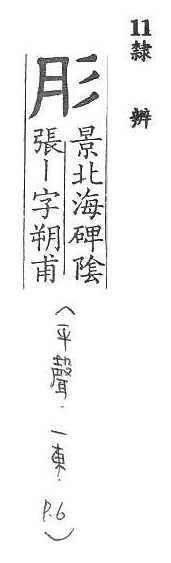 11隸 辨
肜
景北海碑陰
張丨字朔甫
(平聲. 一東. P.6)